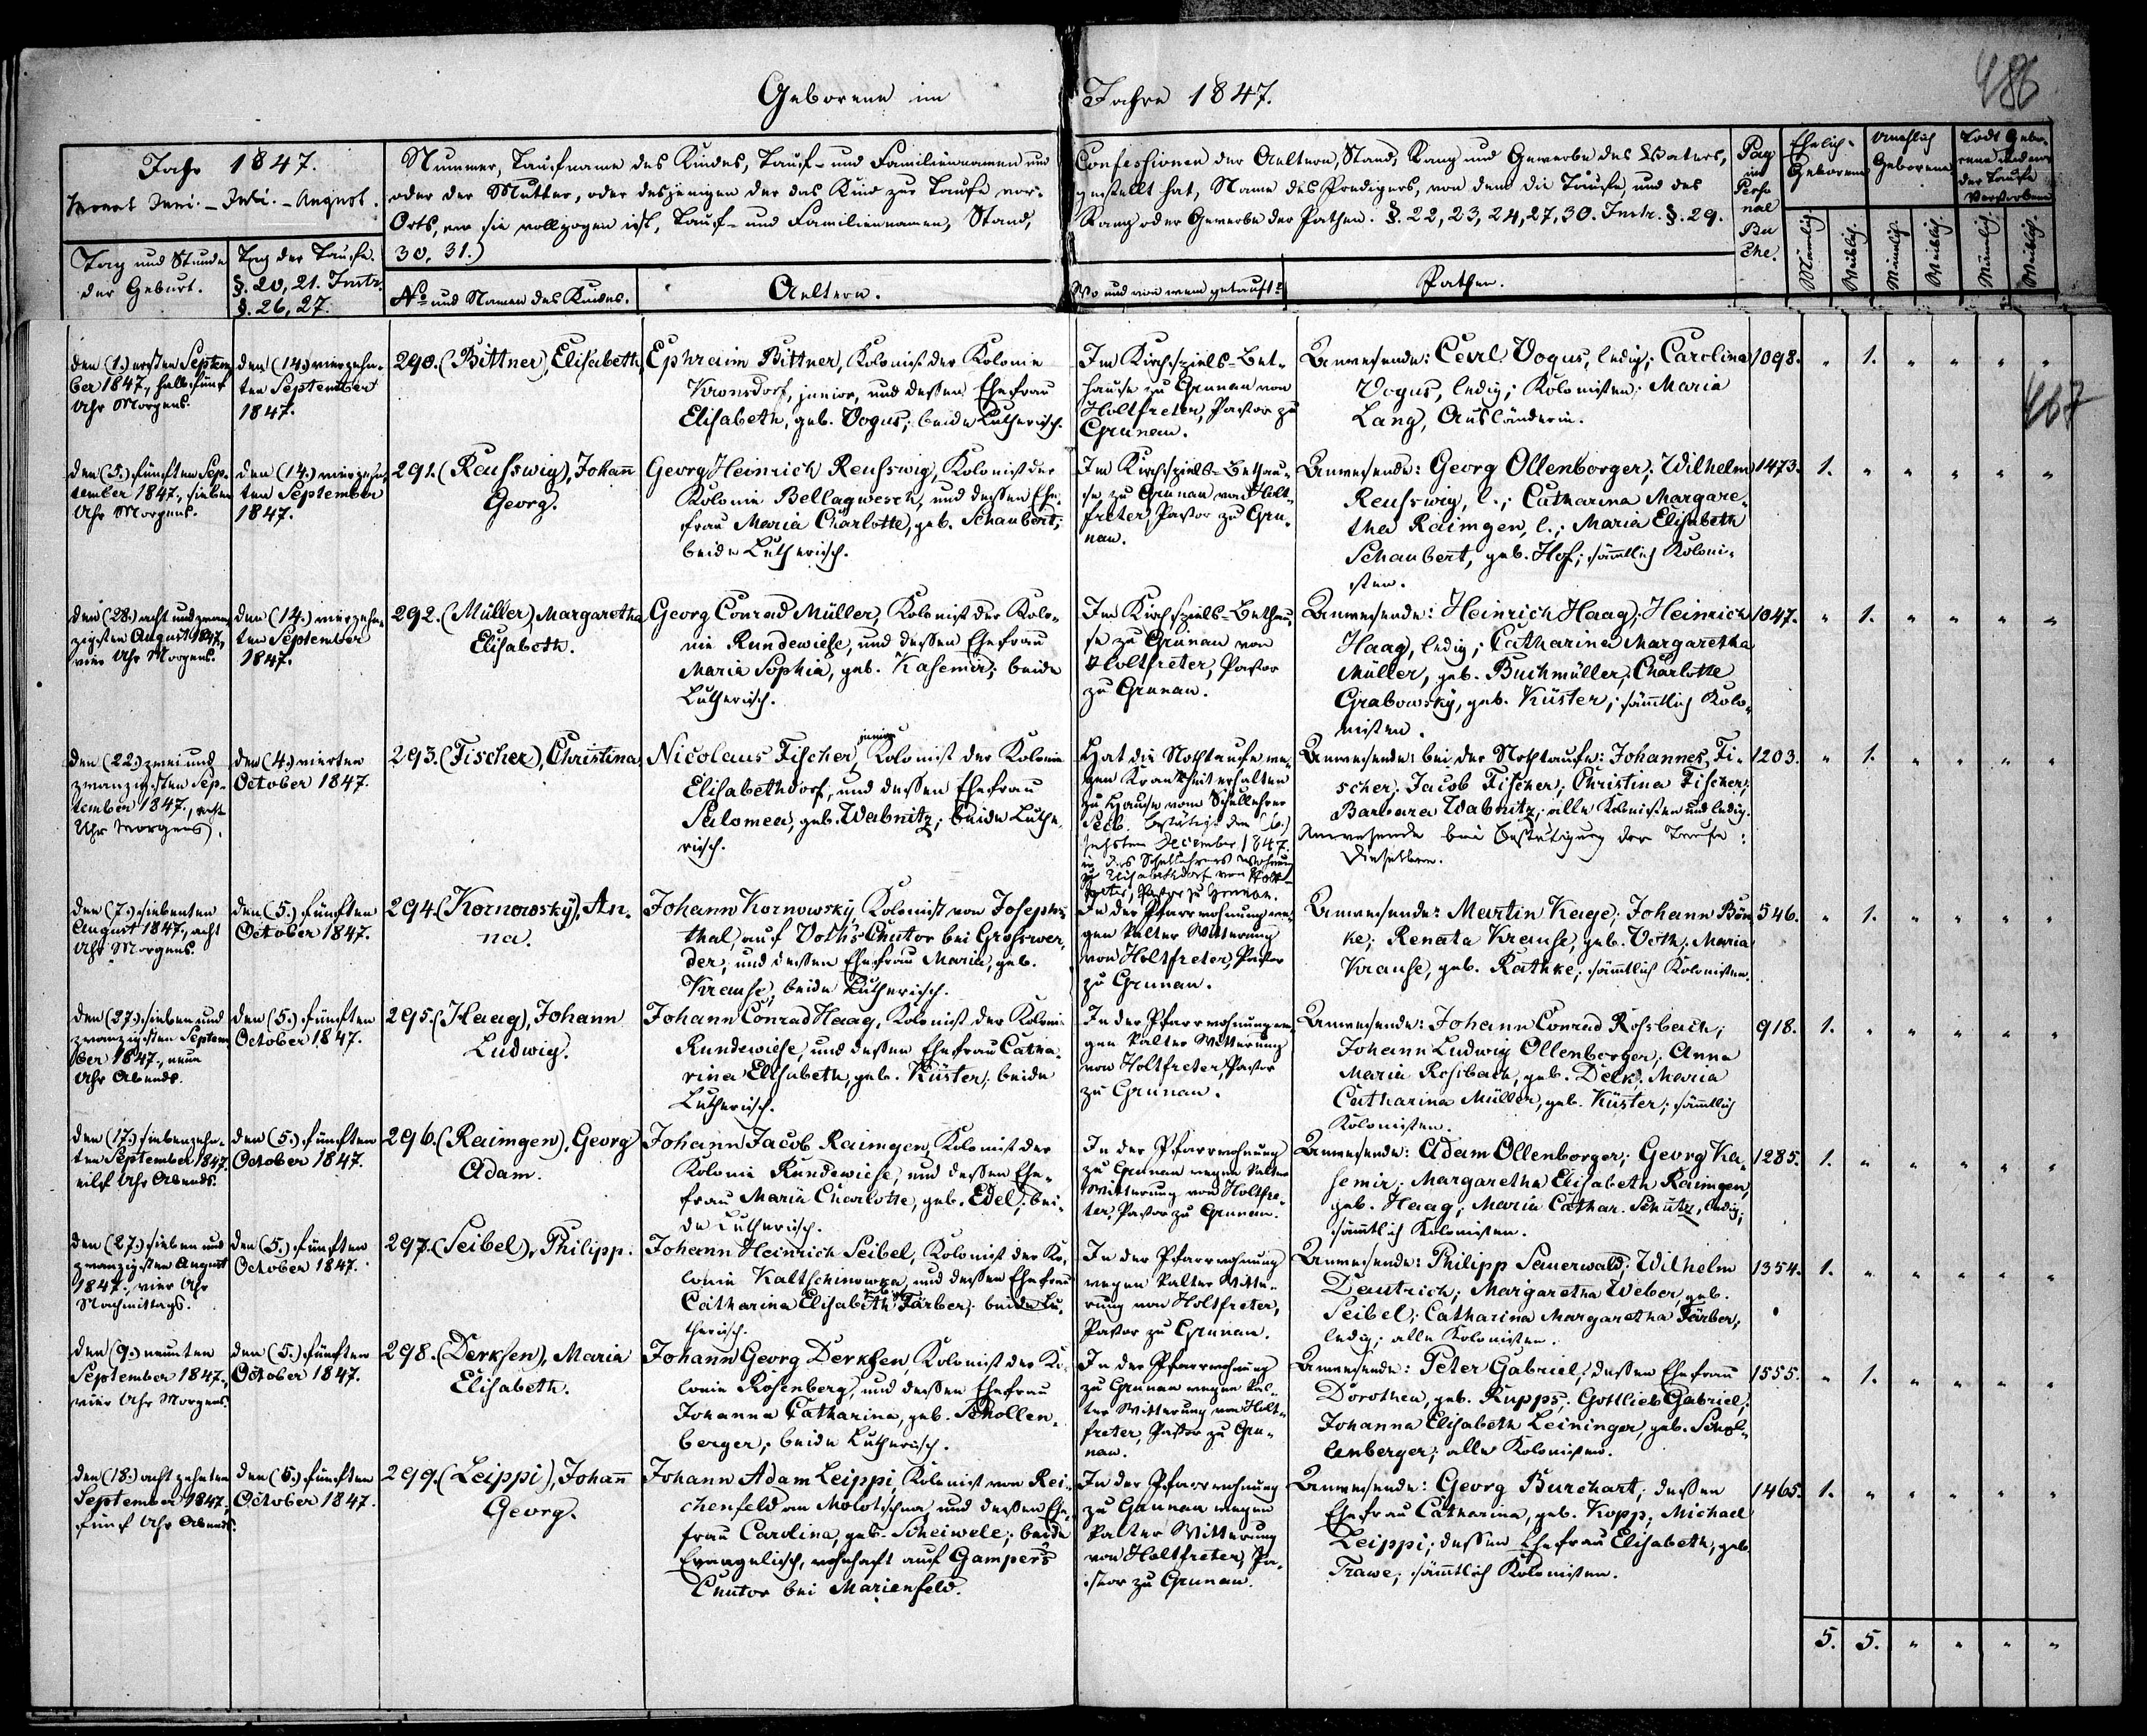 486
Geborene im Jahre 1847.
Jahr 1847.
Monat Juni. - Juli. - August.
Tag und Stunde
der Geburt.
Tag der Taufe.
§. 20, 21. Instr.
§. 26, 27.
Nummer, Taufname des Kindes, Tauf- und Familiennamen und
oder der Mutter, oder desjenigen der das Kind zur Taufe vor-
Orts, wo sie vollzogen ist, Tauf- und Familiennamen, Stand,
30, 31.)
No und Namen des Kindes.
Aeltern.
Confessionen der Aeltern, Stand, Rang und Gewerbe des Vaters,
gestellt hat, Name des Predigers, von dem die Taufe und des
Rang oder Gewerbe der Pathen. §. 22, 23, 24, 27, 30. Instr. §. 29.
Wo und von wem getauft?
Pathen.
Pag
im
Perso
nal
Bu
che.
Ehelich-
Geborene
Unehlich
Geborene
Todt Gebo-
rene und vor
der Taufe
Verstorbene
Männlich.
Weiblich.
Männlich.
Weiblich.
Männlich.
Weiblich.
den (1.) ersten Septem
ber 1847., halb fünf
Uhr Morgens.
den (14.) vierzehn-
ten September
1847.
290. (Bittner), Elisabeth
Ephraim Bittner, Kolonist der Kolonie
Kronsdorf, junior, und dessen Ehefrau
Elisabeth, geb. Vogus; beide Lutherisch.
Im Kirchspiels-Bet-
hause zu Grunau von
Holtfreter, Pastor zu
Grunau.
Anwesende: Carl Vogus, ledig; Carolina
Vogus, ledig; Kolonisten; Maria
Lang, Ausländerin.
1098. " 1. " " " "
467
den (5.) fünften Sep-
tember 1847., sieben
Uhr Morgens.
den (14.) vierzehn-
ten September
1847.
291. (Reusswig), Johann
Georg.
Georg Heinrich Reusswig, Kolonist der
Kolonie Bellagwesch, und dessen Ehe-
frau Maria Charlotte, geb. Schaubert;
beide Lutherisch.
Im Kirchspiels-Bethau-
se zu Grunau von Holt-
freter, Pastor zu Gru-
nau.
Anwesende: Georg Ollenborger; Wilhelm
Reusswig, l.; Catharina Margare-
tha Raimgen, l.; Maria Elisabeth
Schaubert, geb. Hof; sämtlich Koloni-
sten.
1473. 1. " " " " "
den (28.) acht und zwan-
zigsten August 1847.,
vier Uhr Morgens.
den (14.) vierzehn-
ten September
1847.
292. (Müller), Margaretha
Elisabeth.
Georg Conrad Müller, Kolonist der Kolo-
nie Rundewiese, und dessen Ehefrau
Maria Sophia, geb. Kasemir; beide
Lutherisch.
Im Kirchspiels-Bethau-
se zu Grunau von
Holtfreter, Pastor
zu Grunau.
Anwesende: Heinrich Haag; Heinrich
Haag, ledig; Catharina Margaretha
Müller, geb. Buchmüller; Charlotte
Grabowsky, geb. Küster; sämtlich Kolo-
nisten.
1047. " 1. " " " "
den (22.) zwei und
zwanzigsten Sep-
tember 1847., acht
Uhr Morgens.
den (4.) vierten
October 1847.
293. (Fischer), Christina
Nicolaus Fischer, junior Kolonist der Kolonie
Elisabethdorf, und dessen Ehefrau
Salomea, geb. Wabnitz; beide Luthe-
risch.
Hat die Nothtaufe we-
gen Krankheit erhalten
zu Hause vom Schullehrer
Seeb. bestätigt den (6.)
sechsten December 1847.
in des Schullehrers Wohnung
zu Elisabethdorf von Holt-
freter, Pastor zu Grunau.
Anwesende bei der Nothtaufe: Johannes Fi-
scher; Jacob Fischer; Christina Fischer;
Barbara Wabnitz; alle Kolonisten und ledig.
Anwesende bei Bestätigung der Taufe:
Dieselben.
1203. " 1. " " " "
den (7.) siebenten
August 1847., acht
Uhr Morgens.
den (5.) fünften
October 1847.
294. (Kornowsky), An-
na.
Johann Kornowsky, Kolonist von Josephs-
thal, auf Voth's Chutor bei Grosswer-
der, und dessen Ehefrau Maria, geb.
Krause; beide Lutherisch.
In der Pfarrwohnung we-
gen kalter Witterung
von Holtfreter, Pastor
zu Grunau.
Anwesende: Martin Kage; Johann Böm-
ke; Renata Krause, geb. Voth; Maria
Krause, geb. Rathke; sämtlich Kolonisten.
546. " 1. " " " "
den (27.) sieben und
zwanzigsten Septem
ber 1847., neun
Uhr Abends.
den (5.) fünften
October 1847.
295. (Haag), Johann
Ludwig.
Johann Conrad Haag, Kolonist der Kolonie
Rundewiese, und dessen Ehefrau Catha-
rina Elisabeth, geb. Küster; beide
Lutherisch.
In der Pfarrwohnung we-
gen kalter Witterung
von Holtfreter, Pastor
zu Grunau.
Anwesende: Johann Conrad Rossbach;
Johann Ludwig Ollenborger; Anna
Maria Rossbach, geb. Delk; Maria
Catharina Müller, geb. Küster; sämtlich
Kolonisten.
918. 1. " " " " "
den (17.) siebenzehn-
ten September 1847.
eilf Uhr Abends.
den (5.) fünften
October 1847.
296. (Raimgen), Georg
Adam.
Johann Jacob Raimgen, Kolonist der
Kolonie Rundewiese, und dessen Ehe-
frau Maria Charlotte, geb. Edel; bei-
de Lutherisch.
In der Pfarrwohnung
zu Grunau wegen kalter
Witterung von Holtfre-
ter, Pastor zu Grunau.
Anwesende: Adam Ollenborger; Georg Ka-
semir; Margaretha Elisabeth Raimgen,
geb. Haag; Maria Cathar. Schütz, ledig;
sämtlich Kolonisten.
1285. 1. " " " " "
den (27.) sieben und
zwanzigsten August
1847., vier Uhr
Nachmittags.
den (5.) fünften
October 1847.
297. (Seibel), Philipp.
Johann Heinrich Seibel, Kolonist der Ko-
lonie Kaltschinowka, und dessen Ehefrau
Catharina Elisabeth geb. Färber; beide Lu-
therisch.
In der Pfarrwohnung
wegen kalter Witte-
rung von Holtfreter,
Pastor zu Grunau.
Anwesende: Philipp Sauerwald; Wilhelm
Dautrich; Margaretha Weber, geb.
Seibel; Catharina Margaretha Färber,
ledig; alle Kolonisten.
1354. 1. " " " " "
den (9.) neunten
September 1847.,
vier Uhr Morgens.
den (5.) fünften
October 1847.
298. (Derksen), Maria
Elisabeth.
Johann Georg Derksen, Kolonist der Ko-
lonie Rosenberg, und dessen Ehefrau
Johanna Catharina, geb. Schollen-
berger; beide Lutherisch.
In der Pfarrwohnung
zu Grunau wegen kal-
ter Witterung von Holt-
freter, Pastor zu Gru-
nau.
Anwesende: Peter Gabriel; dessen Ehefrau
Dorothea, geb. Rupps; Gottlieb Gabriel;
Johanna Elisabeth Leininger, geb. Schol-
lenberger; alle Kolonisten.
1555. " 1. " " " "
den (18.) achtzehnten
September 1847.
fünf Uhr Abends.
den (5.) fünften
October 1847.
299. (Leippi), Johann
Georg.
Johann Adam Leippi, Kolonist von Rei-
chenfeld an Molotschna, und dessen Ehe-
frau Carolina, geb. Scheiwele; beide
Evangelisch, wohnhaft auf Gamper's
Chutor bei Marienfeld.
In der Pfarrwohnung
zu Grunau wegen
kalter Witterung
von Holtfreter, Pa-
stor zu Grunau.
Anwesende: Georg Burchart; dessen
Ehefrau Catharina, geb. Kopp; Michael
Leippi; dessen Ehefrau Elisabeth, geb.
Trawe; sämtlich Kolonisten.
1465. 1. " " " " "
5. 5. " " " "